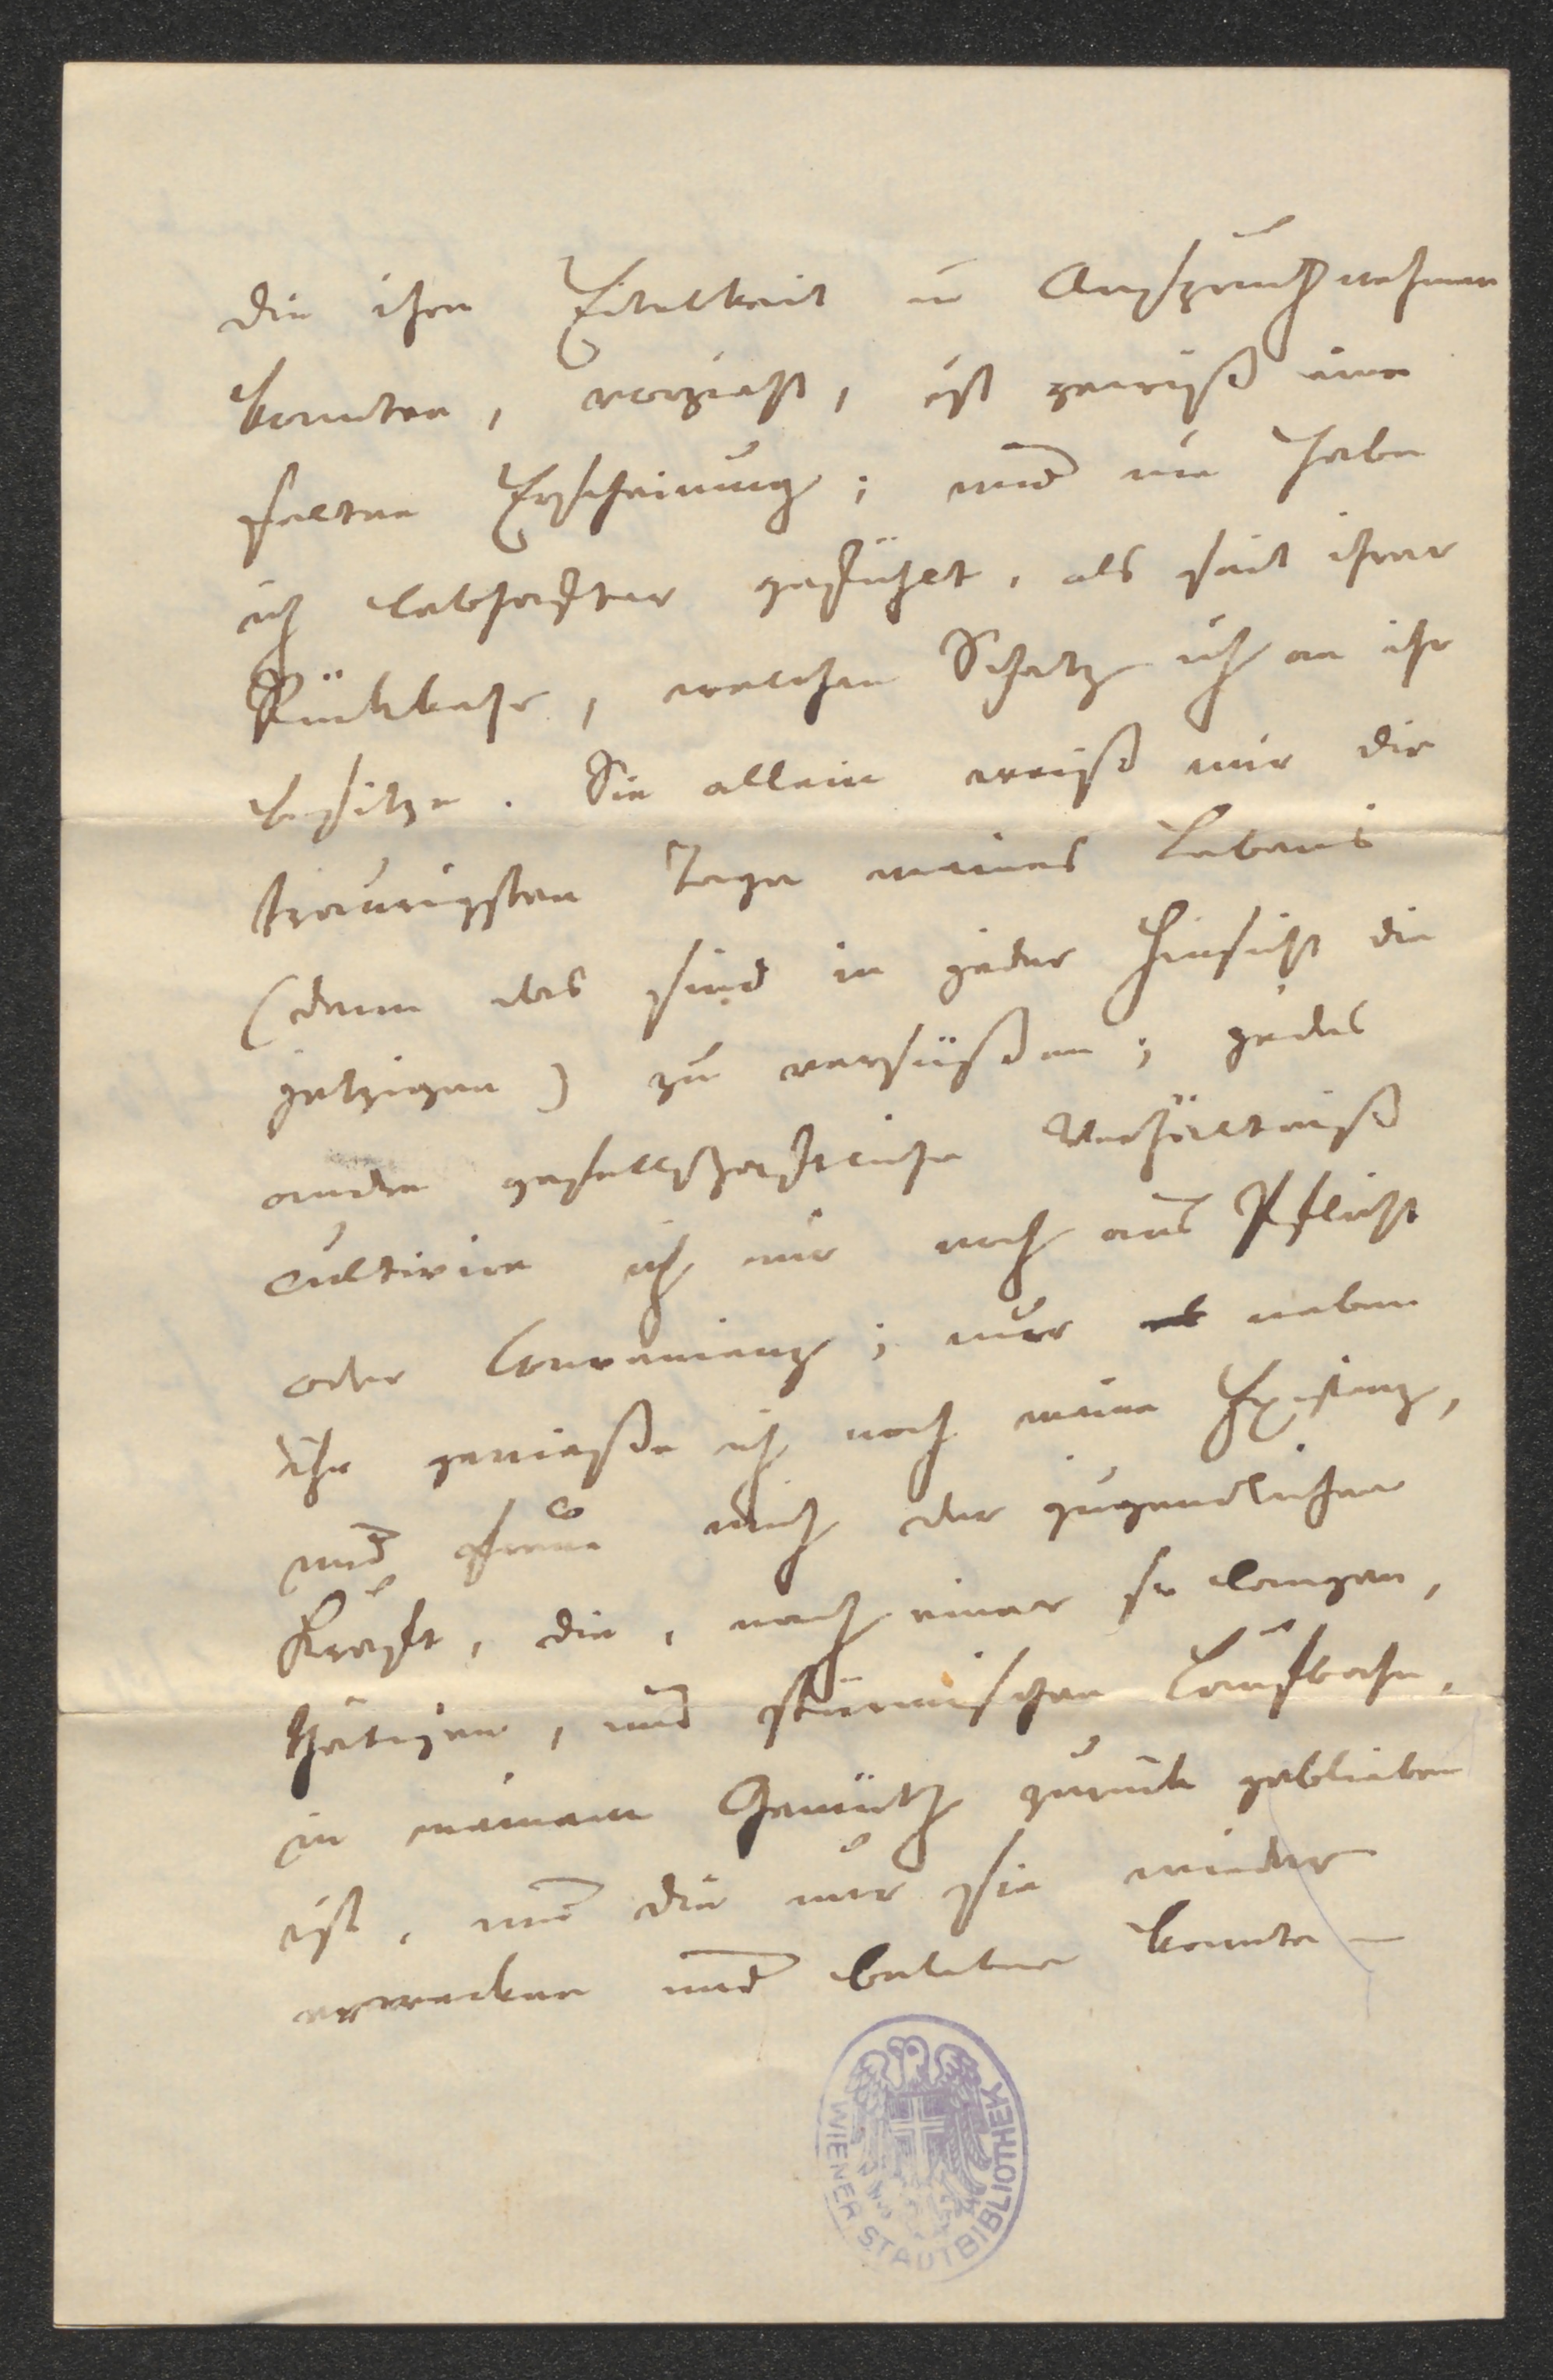 die ihre Eitelkeit in Anspruch nehmen
konnten, vorzieht, ist gewiß eine
seltne Erscheinung; und nie habe
ich lebhafter gefühlt, als seit ihrer
Rückkehr, welchen Schatz ich an ihr
besitze. Sie allein weiß mir die
traurigsten Tage meines Lebens
(denn das sind in jeder Hinsicht die
jetzigen) zu versüßen; jedes
andre gesellschaftliche Verhältniß
cultivire ich nur noch aus Pflicht
oder Convenienz; nur neben
ihr genieße ich noch meine Existenz,
und freue mich der jugendlichen
Kraft, die, nach einer so langen,
thätigen, und stürmischen Laufbahn,
in meinem Gemüth zurück geblieben
ist, und die nur sie wieder
erwecken und beleben konnte –
WIENER STADTBIBLIOTHEK